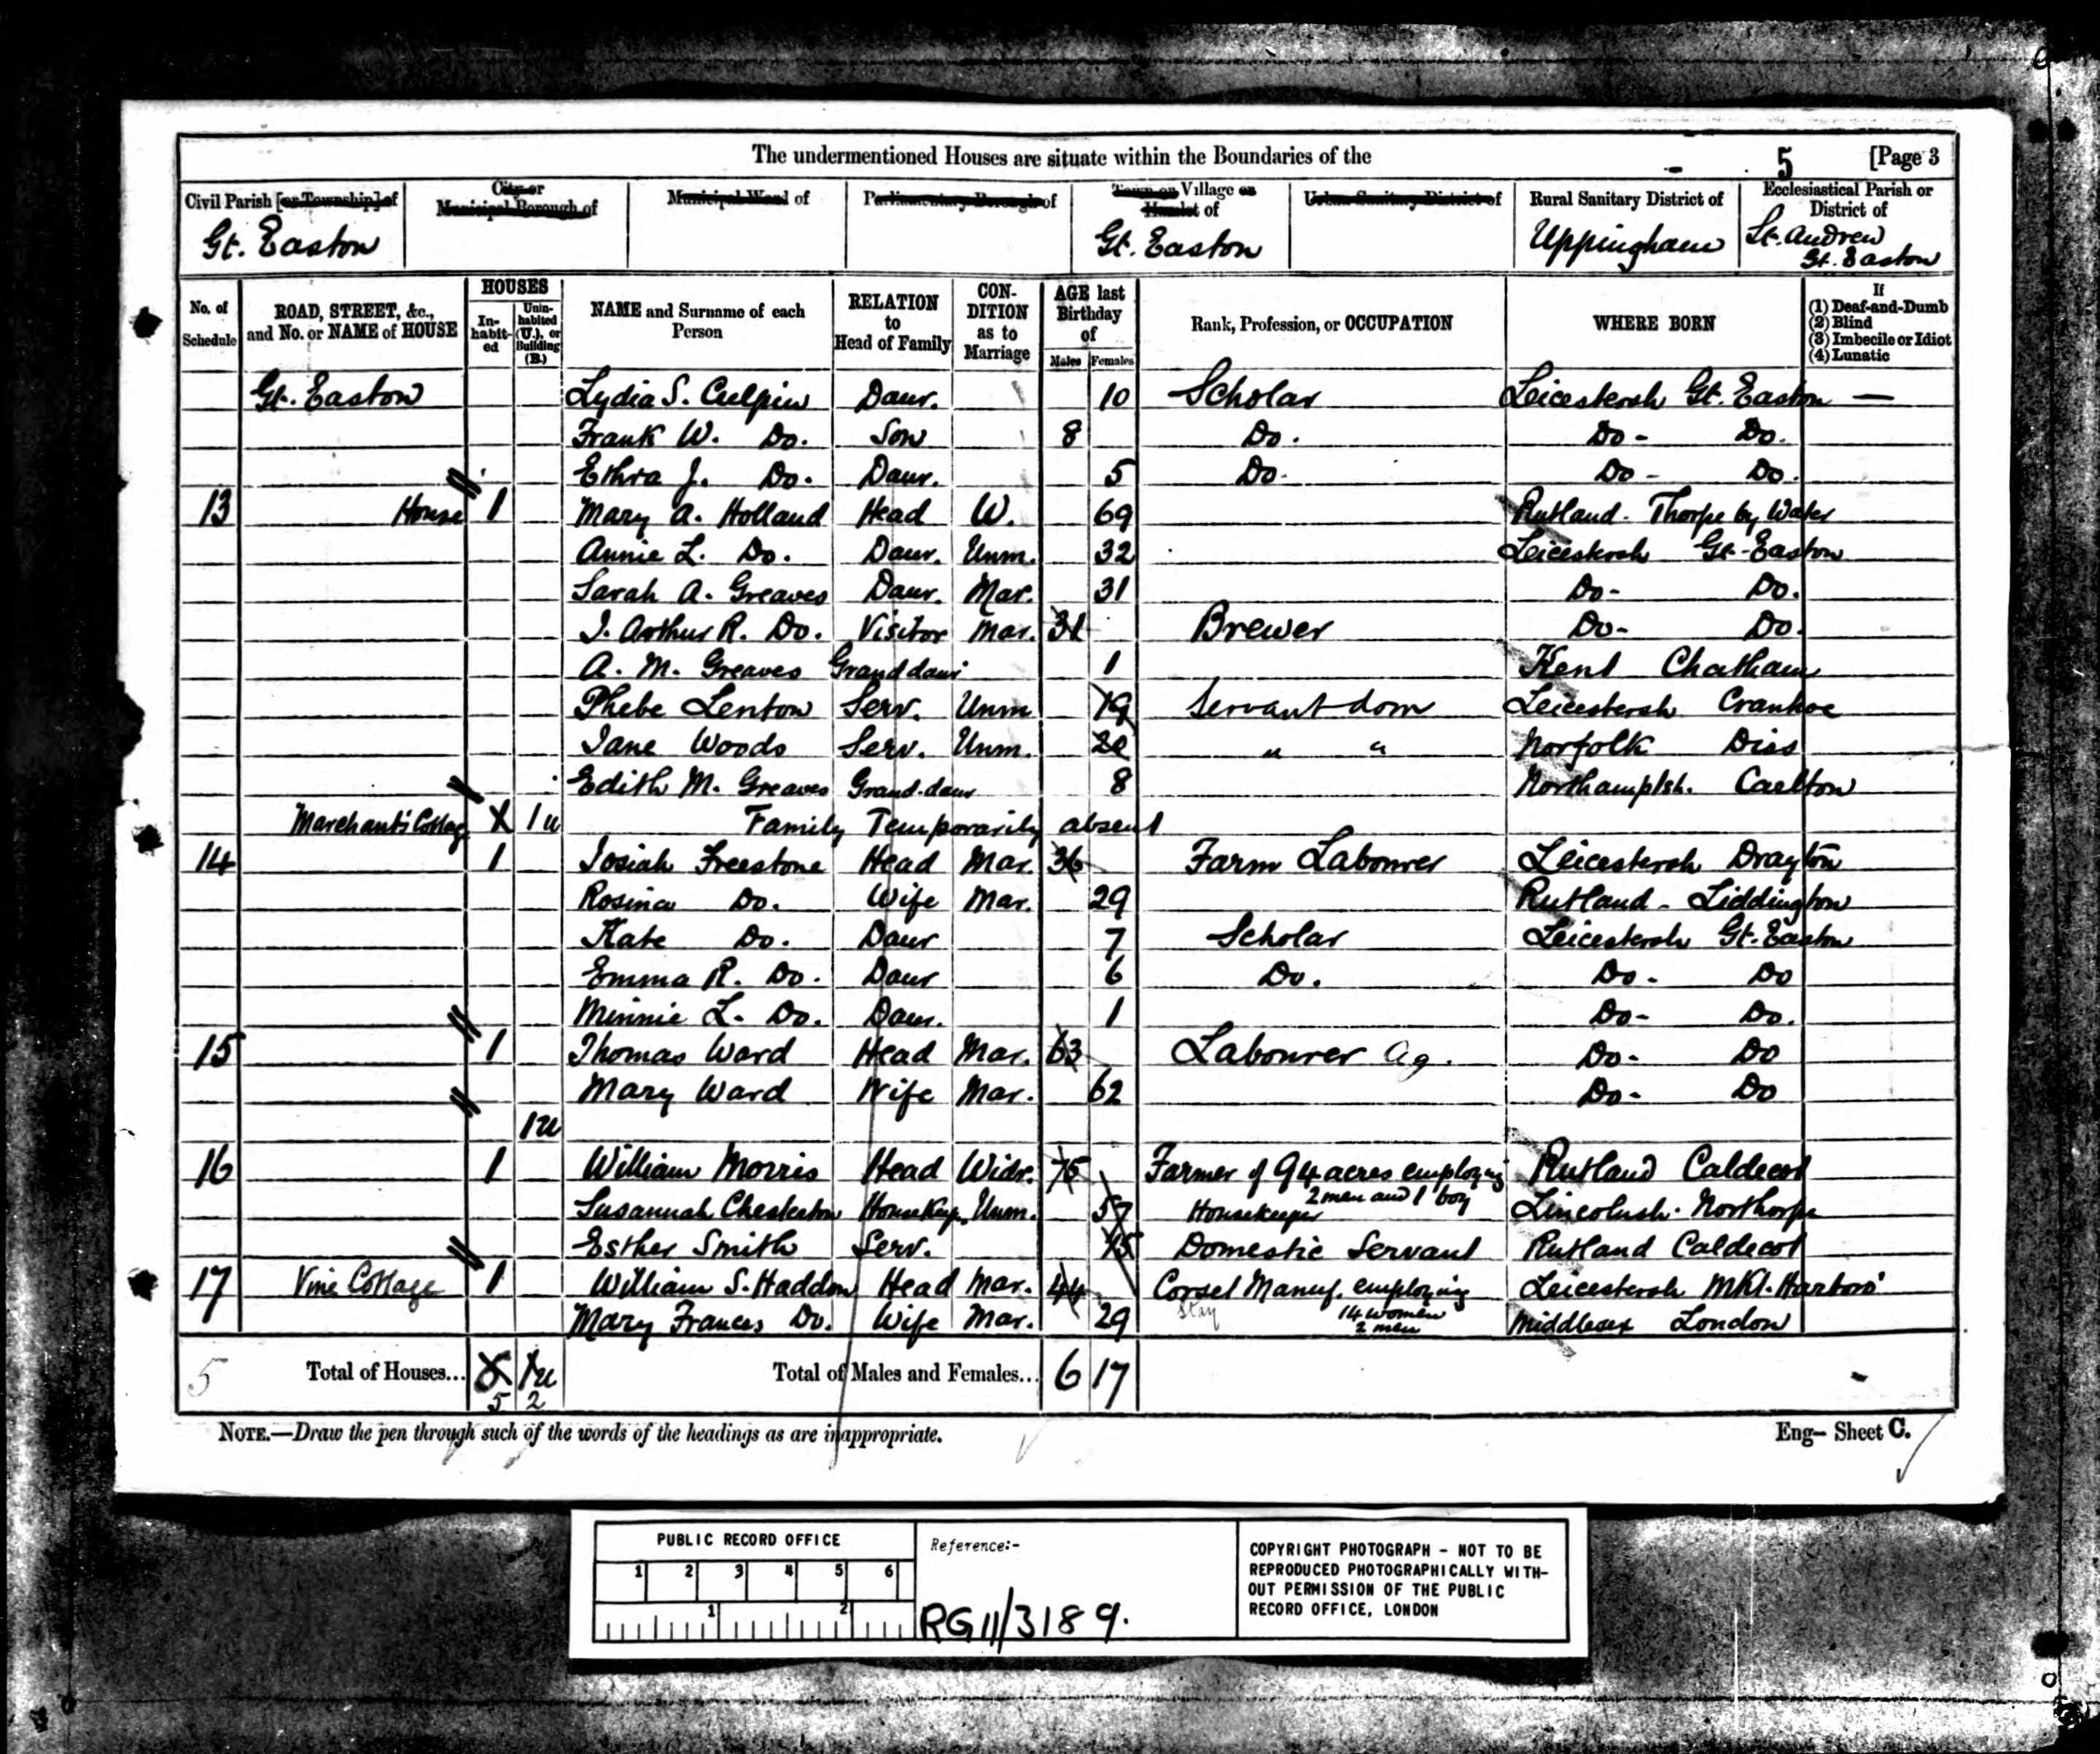 The undermentioned Houses are situate within the Boundaries of the 5 [Page 3
Civil Parish [or Township] of City or Municipal Borough of Municipal Ward of Parliamentary Borough of Town or Village or Hamlet of Urban Sanitary District of Rural Sanitary District of Ecclesiastical Parish or District of
Gt. Easton Gt. Easton Uppingham St. Andrew Gt. Easton
No. of Schedule ROAD, STREET, &c., and No. or NAME of HOUSE HOUSES Inhabited Uninhabited (U.), or Building (B.) NAME and Surname of each Person RELATION to Head of Family CONDITION as to Marriage AGE last Birthday of Males Females Rank, Profession, or OCCUPATION WHERE BORN If (1) Deaf-and-Dumb (2) Blind (3) Imbecile or Idiot (4) Lunatic
Gt. Easton Lydia S. Culpin Daur. 10 Scholar Leicestersh Gt. Easton —
Frank W. Do. Son 8 Do. Do - Do.
Ethra J. Do. Daur. 5 Do. Do - Do.
13 House 1 Mary A. Holland Head W. 69 Rutland - Thorpe by Water
Annie L. Do. Daur. Unm. 32 Leicestersh Gt. Easton
Sarah A. Greaves Daur. Mar. 31 Do - Do.
J. Arthur R. Do. Visitor Mar. 31 Brewer Do - Do.
A. M. Greaves Grand daur 1 Kent Chatham
Phebe Lenton Serv. Unm 19 Servant dom Leicestersh Cranhoe
Jane Woods Serv. Unm. 20 " " Norfolk Diss
Edith M. Greaves Grand-daur 8 Northamptsh. Carlton
Marchant's Cottag X 1u Family Temporarily absent
14 1 Josiah Freestone Head Mar. 36 Farm Labourer Leicestersh Drayton
Rosina Do. Wife Mar. 29 Rutland - Liddington
Kate Do. Daur 7 Scholar Leicestersh Gt. Easton
Emma R. Do. Daur 6 Do. Do - Do
Minnie L. Do. Daur. 1 Do - Do.
15 1 Thomas Ward Head Mar. 63 Labourer Ag. Do - Do
Mary Ward Wife Mar. 62 Do - Do
1u
16 1 William Morris Head Widr. 75 Farmer of 94 acres employing 2 men and 1 boy Rutland Caldecot
Susannah Chesterton HouseKeepr. Unm. 57 Housekeeper Lincolnsh. Northorpe
Esther Smith Serv. 15 Domestic Servant Rutland Caldecot
17 Vine Cottage 1 William S. Haddon Head Mar. 44 Corset Manuf. employing Leicestersh Mkt. Harboro'
Mary Frances Do. Wife Mar. 29 Stay 14 women 2 men Middlesex London
5 Total of Houses... 5 2 Total of Males and Females... 6 17
NOTE.—Draw the pen through such of the words of the headings as are inappropriate. Eng- Sheet C.
PUBLIC RECORD OFFICE
1 2 3 4 5 6
1 2
Reference:-
RG11/3189.
COPYRIGHT PHOTOGRAPH - NOT TO BE
REPRODUCED PHOTOGRAPHICALLY WITH-
OUT PERMISSION OF THE PUBLIC
RECORD OFFICE, LONDON